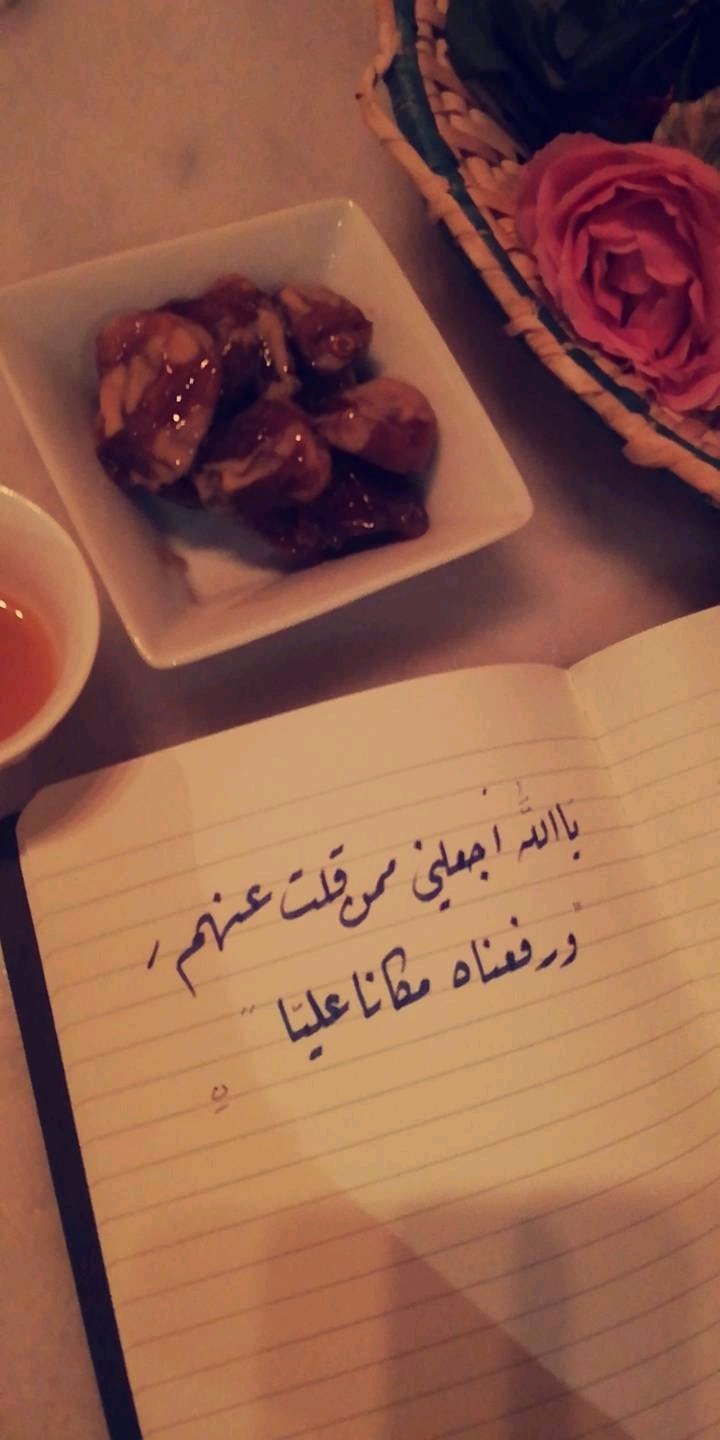 ياالله أجعلني ممن قلت عنهم ،
"ورفعناه مكانا عليّا"